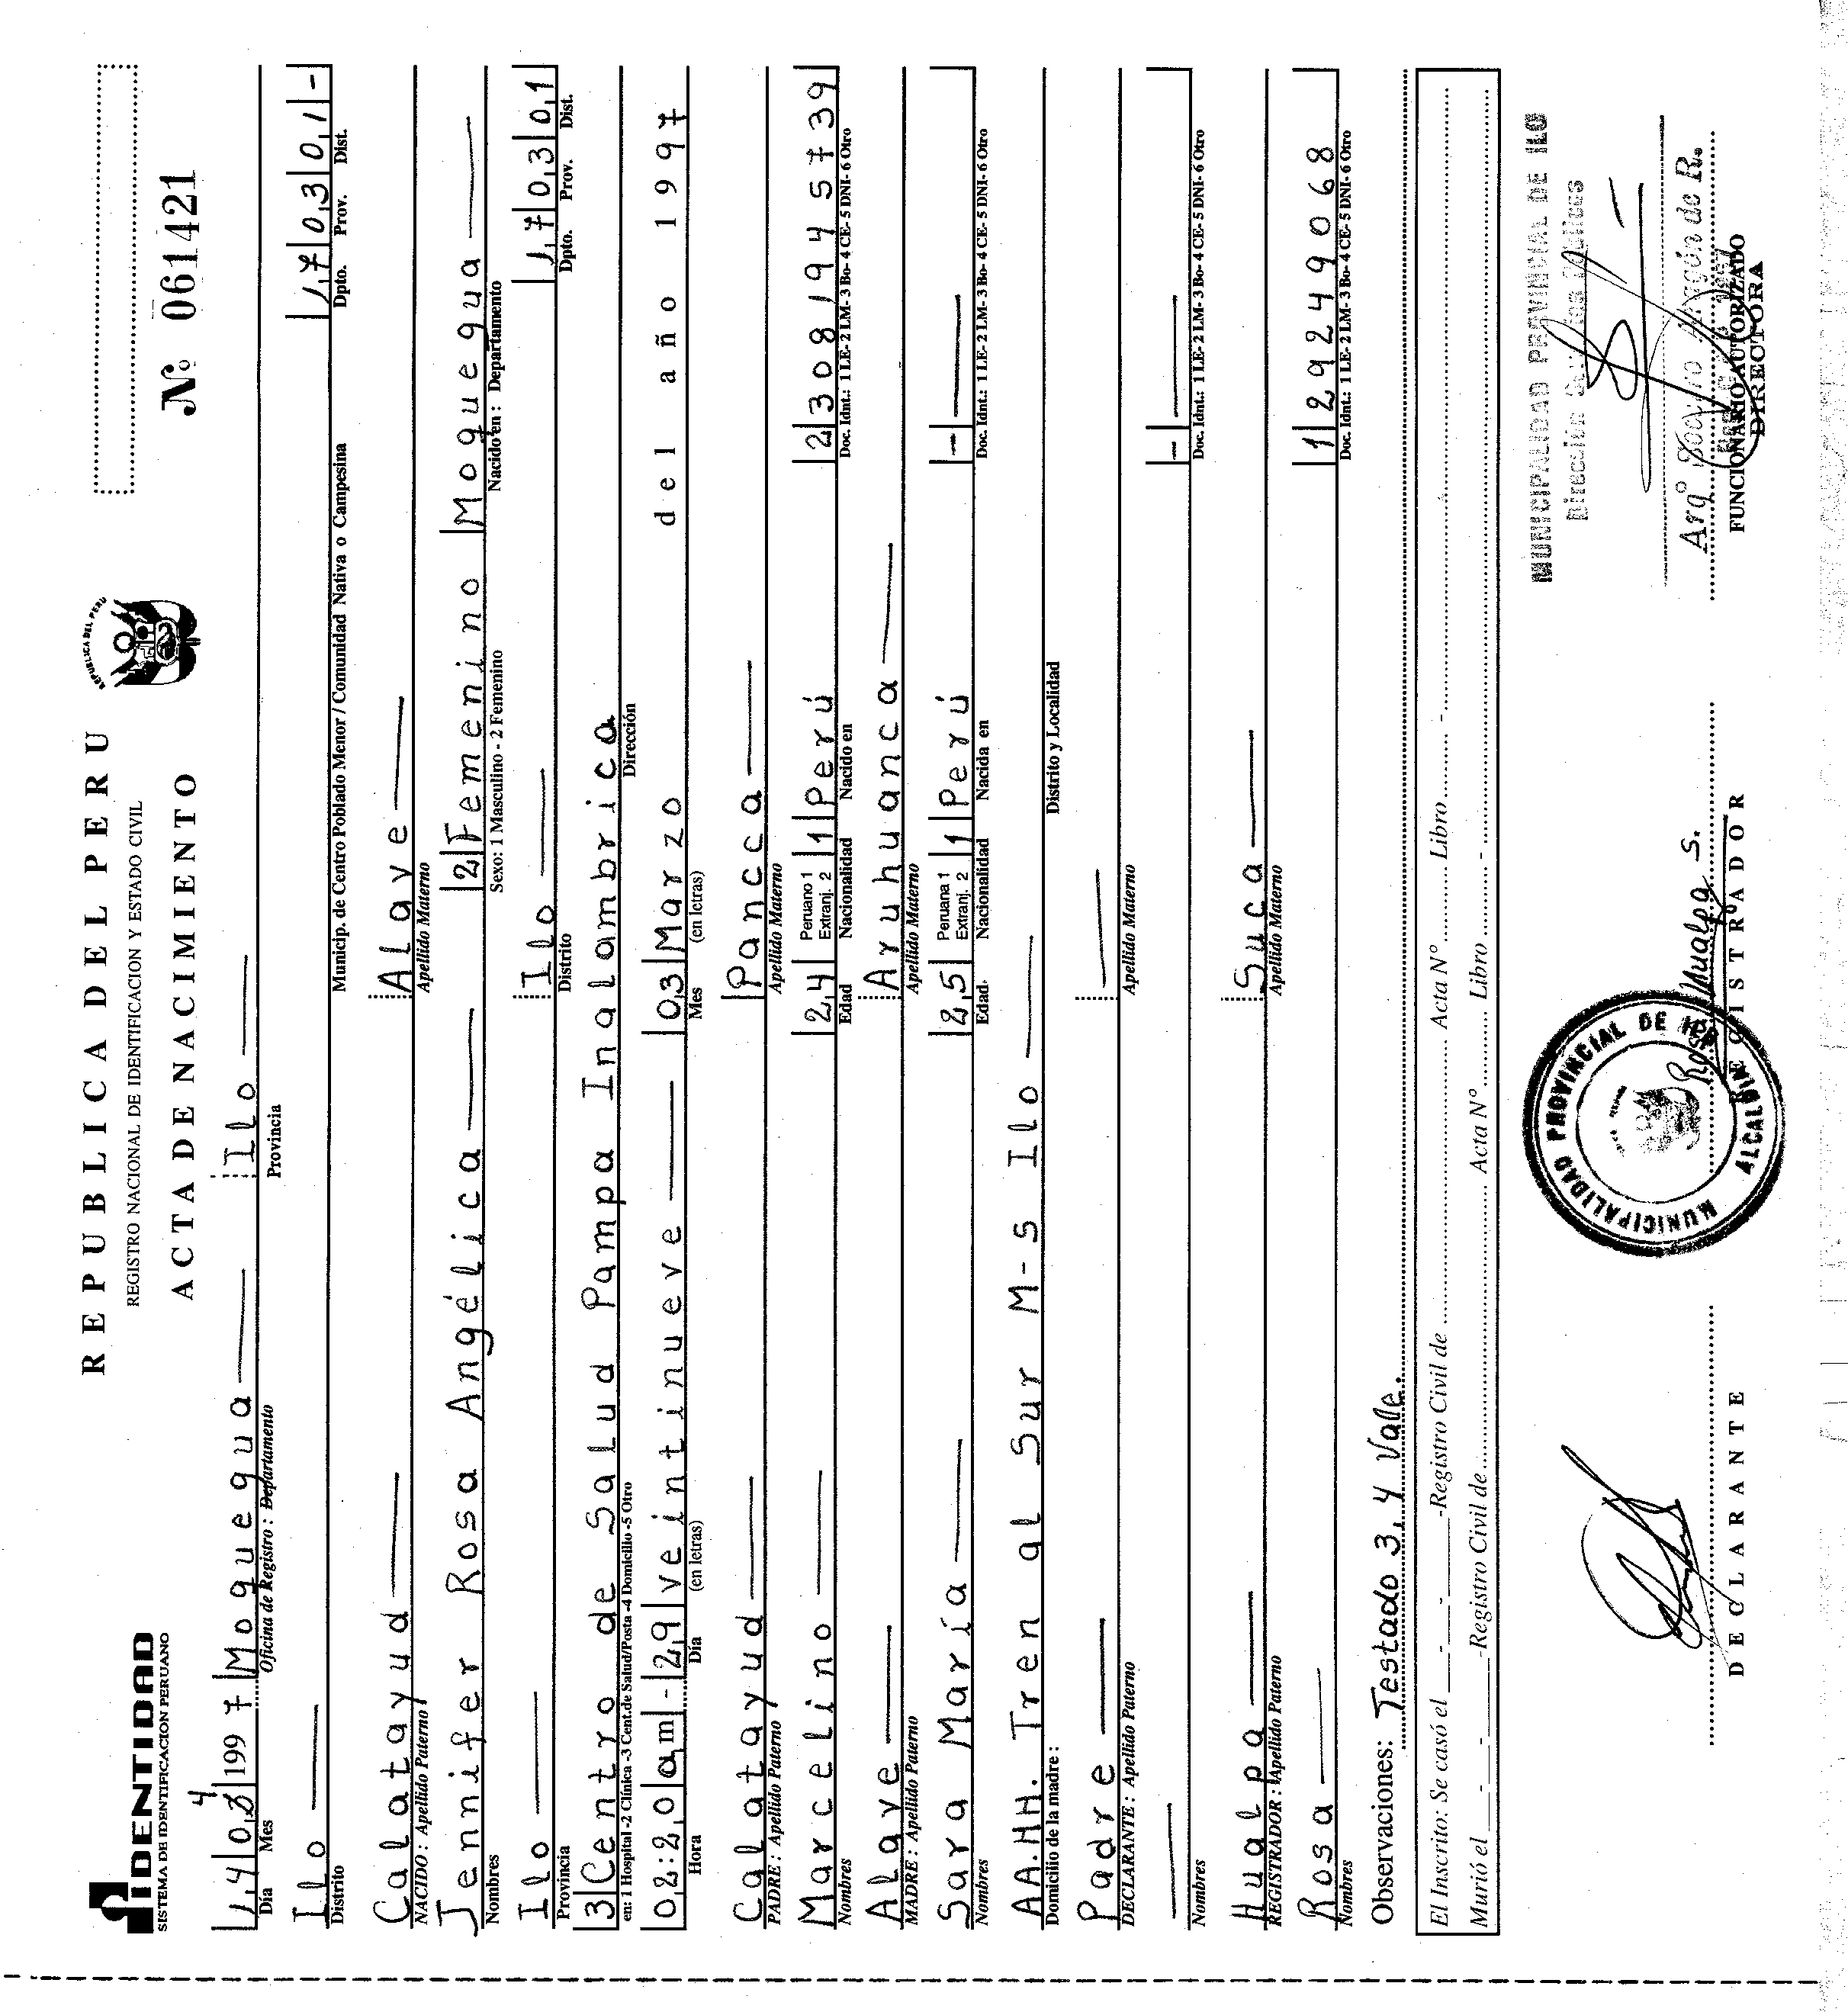 IDENTIDAD
SISTEMA DE IDENTIFICACION PERUANO
REPUBLICA DEL PERU
REPUBLICA DEL PERU
REGISTRO NACIONAL DE IDENTIFICACION Y ESTADO CIVIL
ACTA DE NACIMIENTO
Nº 061421
14 03 4 1997 Moquegua Ilo
Día Mes Oficina de Registro : Departamento Provincia
Ilo 17 03 01 -
Distrito Municip. de Centro Poblado Menor / Comunidad Nativa o Campesina Dpto. Prov. Dist.
Calatayud Alave
NACIDO : Apellido Paterno Apellido Materno
Jennifer Rosa Angélica 2 Femenino Moquegua
Nombres Sexo: 1 Masculino - 2 Femenino Nacido en : Departamento
Ilo Ilo 17 03 01
Provincia Distrito Dpto. Prov. Dist.
3 Centro de Salud Pampa Inalambrica
en: 1 Hospital -2 Clínica -3 Cent.de Salud/Posta -4 Domicilio -5 Otro Dirección
02:20 am - 29 veintinueve 03 Marzo del año 1997
Hora Día (en letras) Mes (en letras)
Calatayud Pancca
PADRE : Apellido Paterno Apellido Materno
Marcelino 24 Peruano 1 Extranj. 2 1 Perú 2 3081944 5739
Nombres Edad Nacionalidad Nacido en Doc. Idnt.: 1 LE- 2 LM- 3 Bo- 4 CE- 5 DNI- 6 Otro
Alave Aruhuanca
MADRE : Apellido Paterno Apellido Materno
Sara María 25 Peruana 1 Extranj. 2 1 Perú -
Nombres Edad. Nacionalidad Nacida en Doc. Idnt.: 1 LE- 2 LM- 3 Bo- 4 CE- 5 DNI- 6 Otro
AA.HH. Tren al Sur M-S Ilo
Domicilio de la madre : Distrito y Localidad
Padre
DECLARANTE : Apellido Paterno Apellido Materno
-
Nombres Doc. Idnt.: 1 LE- 2 LM- 3 Bo- 4 CE- 5 DNI- 6 Otro
Hualpa Suca
REGISTRADOR : Apellido Paterno Apellido Materno
Rosa 1 29249068
Nombres Doc. Idnt.: 1 LE- 2 LM- 3 Bo- 4 CE- 5 DNI- 6 Otro
Observaciones: Testado 3, 4 Valle.
El Inscrito: Se casó el - - -Registro Civil de Acta Nº Libro -
Murió el - - -Registro Civil de Acta Nº Libro -
MUNICIPALIDAD PROVINCIAL DE ILO
MUNICIPALIDAD PROVINCIAL DE ILO
ALCALDIA
Rosa Hualpa S.
Arqº
DECLARANTE
REGISTRADOR
FUNCIONARIO AUTORIZADO
DIRECTORA